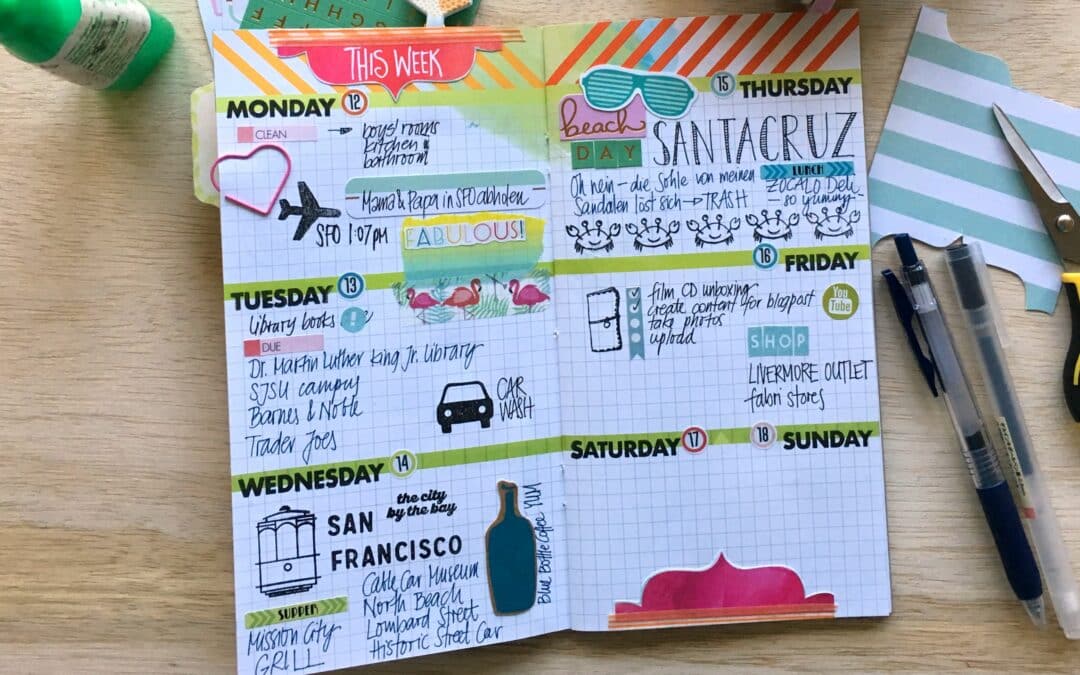 GHHH
THIS WEEK
MONDAY 12
CLEAN
boys' rooms
kitchen &
bathroom
Mama & Papa in SFO abholen
SFO 1:07pm
FABULOUS!
TUESDAY 13
library books
DUE
Dr. Martin Luther King Jr. Library
SJSU campus
Barnes & Noble
Trader Joes
CAR
WASH
WEDNESDAY 14
the city
by the bay
SAN
FRANCISCO
Cable Car Museum
North Beach
Lombard Street
Historic Street Car
SUPPER
Mission City
GRILL
Blue Bottle Coffee YUM
15 THURSDAY
beach
DAY
SANTACRUZ
Oh nein – die Sohle von meinen
Sandalen löst sich → TRASH
LUNCH
ZOCALO Deli
– so yummy
16 FRIDAY
film CD unboxing
create content for blogpost
take photos
upload
You
Tube
SHOP
LIVERMORE OUTLET
fabri stores
SATURDAY 17
18 SUNDAY